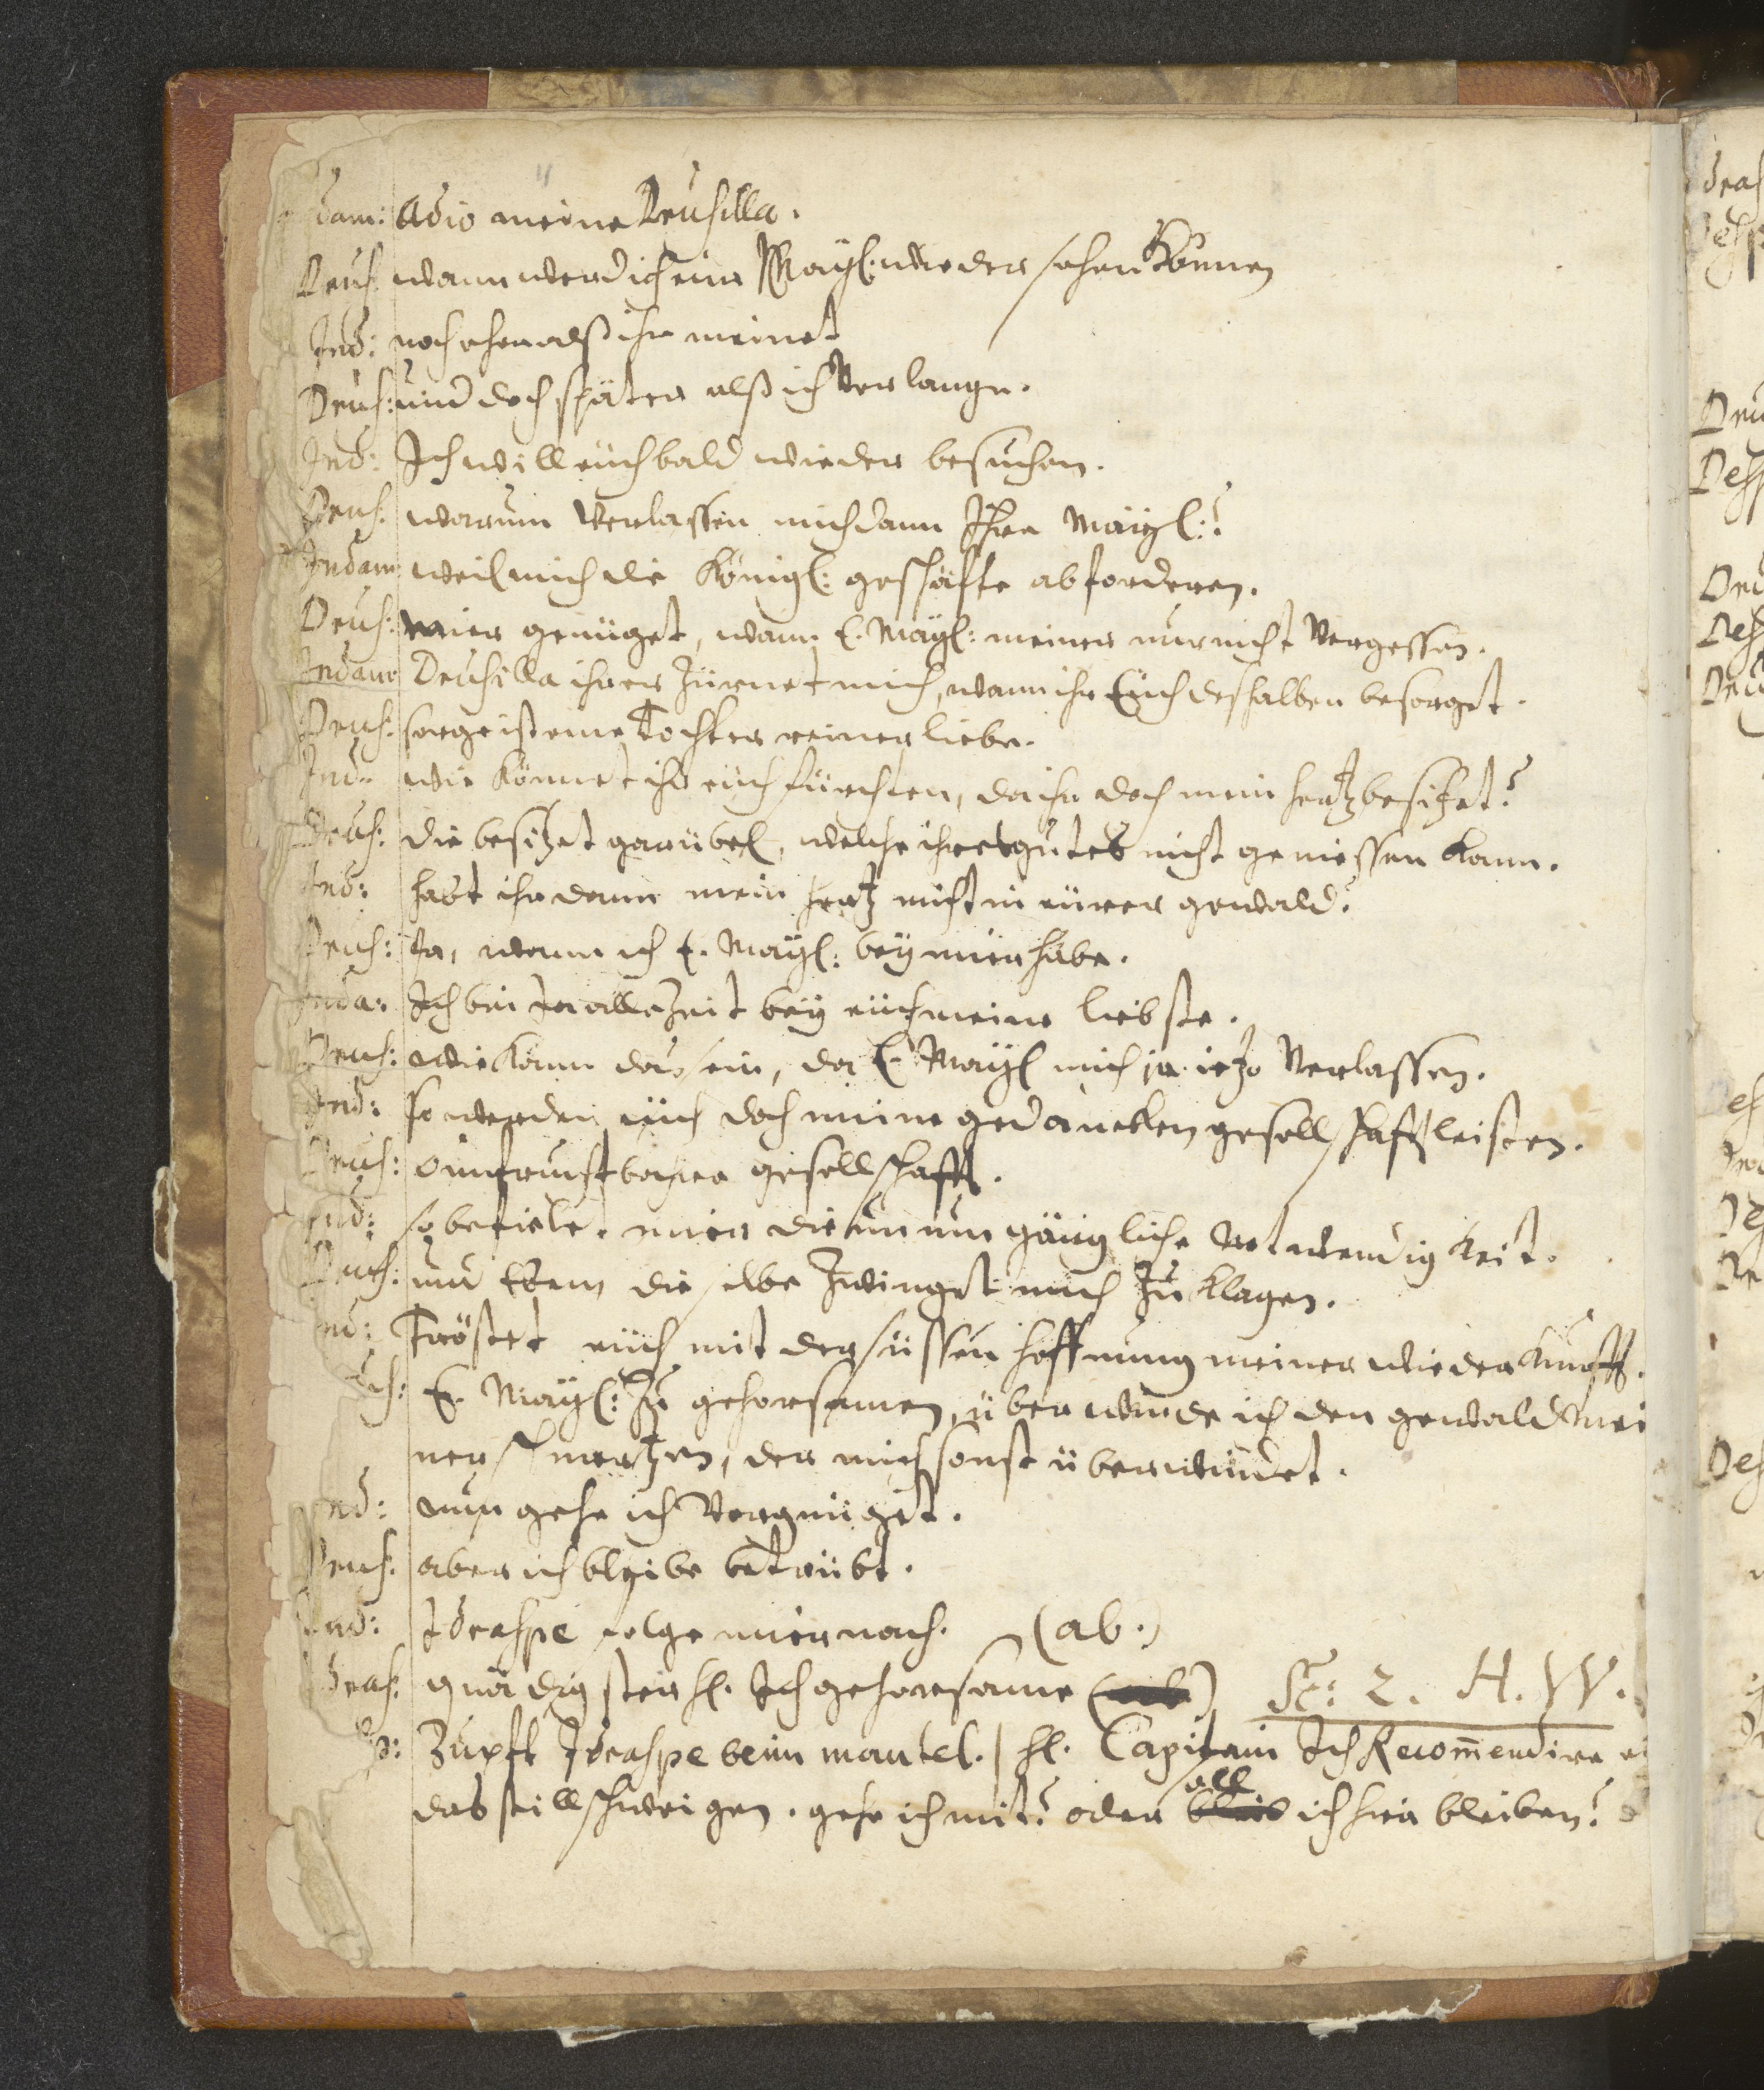 dam: Adio meine Drusilla.
Drus. wann werd ich eüer Maÿl: wieder sehen können
Ind: noch eher alß ihr meinet
Drus: und doch später alß ich verlange.
Ind: Ich will eüch bald wieder besuchen.
Drus: warum verlassen mich dann Ihre Maÿl:?
Indam: weil mich die Königl: geschäfte abforderen.
Drus: mier genüget, wann E. Maÿl: meiner nur nicht vergessen.
Indamo Drusilla ihr er zürnet mich, wann ihr Eüch deshalben besorget.
Drus: sorge ist eine Tochter reiner liebe.
Ind: wie könnet ihr eüch fürchten, da ihr doch mein hertz besitzet?
Drus: die besitzet gar übel, welche ihres gutes nicht geniessen kann.
Ind: habt ihr dann mein hertz nicht in eürer gewald?
Drus: Ja, wann ich E. Maÿl: beÿ mier habe.
Inda: Ich bin ja allezeit beÿ eüch meine liebste.
Drus: wie kann das sein, da E. Maÿl mich ja ietzo verlassen.
Ind: so werden eüch doch meine gedancken gesellschafft leisten.
Drus: o unfruchtbahre gesellschafft.
Ind: so befiele mier die un um gängliche Notwendigkeit.
Drus: und eben dieselbe zwinget mich zu klagen.
Ind: Tröstet eüch mit der süssen hoffnung meiner wiederkunfft.
us: E. Maÿl: zu gehorsamen, überwinde ich den gewald mei
ner schmertzen, der mich sonst überwindet.
nd: nun gehe ich vergnüget.
Drus: aber ich bleibe betrübt.
Ind: Idraspe folge mier nach. (ab.)
dras: gnädigster H. Ich gehorsame Sc: 2. H. W.
sp: Zupft Idraspe beim mantel. / H. Capitain Ich Recom̄endire
das stillschweigen. gehe ich mit? oder all ich hier bleiben?